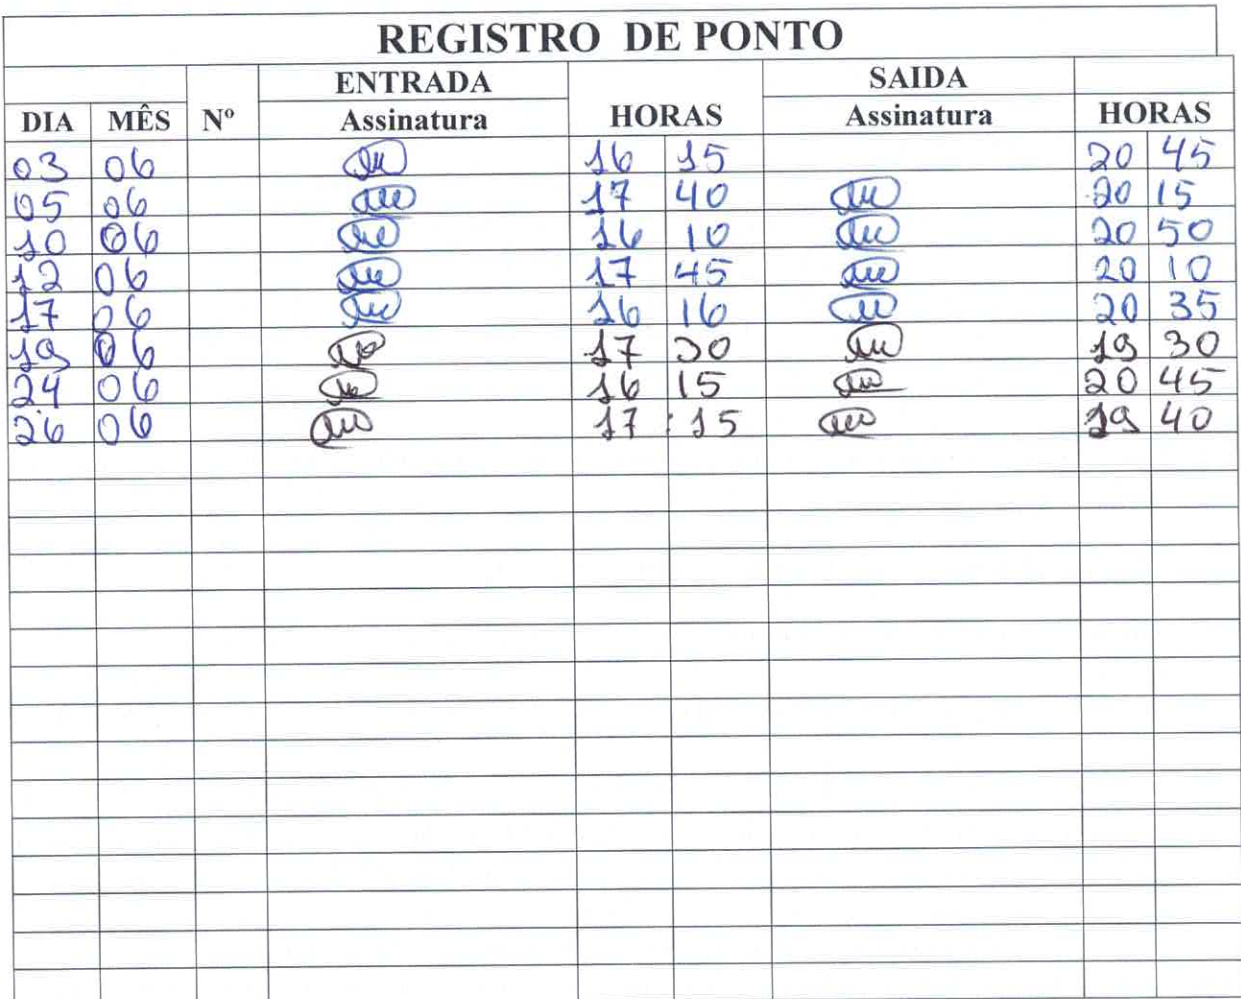 REGISTRO DE PONTO
ENTRADA SAIDA
DIA MÊS Nº Assinatura HORAS Assinatura HORAS
03 06 16 15 20 45
05 06 17 40 20 15
10 06 16 10 20 50
12 06 17 45 20 10
17 06 16 16 20 35
19 06 17 30 19 30
24 06 16 15 20 45
26 06 17 : 15 19 40